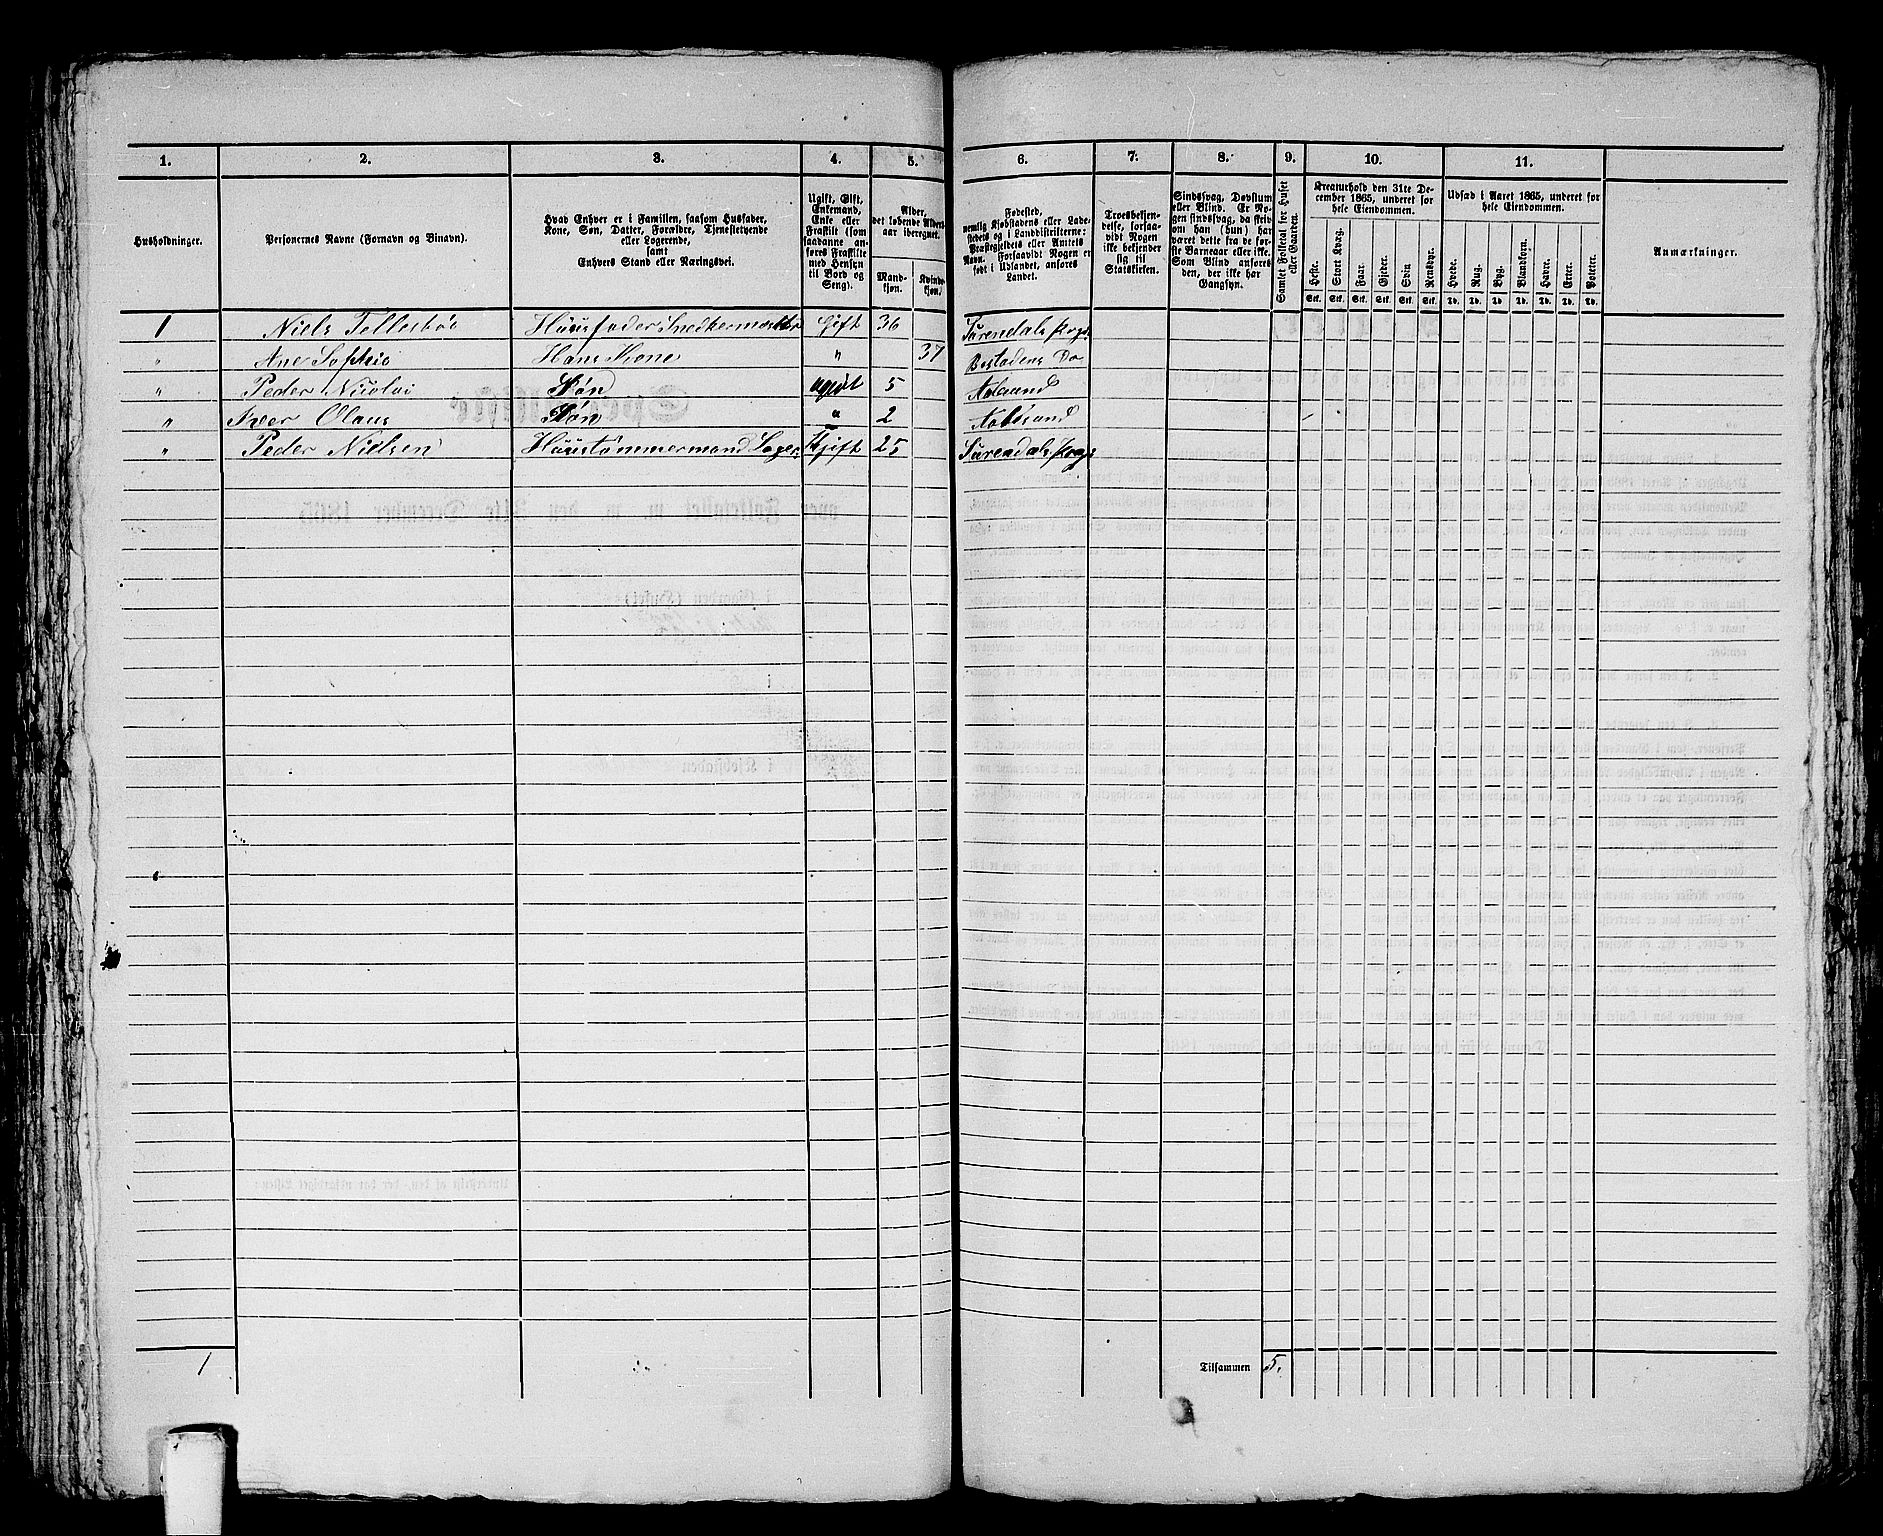 1. 2. 3. 4. 5. 6. 7. 8. 9. 10. 11.
Husholdninger.
Personernes Navne (Fornavn og Binavn).
Hvad Enhver er i Familien, saasom Husfader,
Kone, Søn, Datter, Forældre, Tjenestetyende
eller Logerende,
samt
Enhvers Stand eller Næringsvei.
Ugift, Gift,
Enkemand,
Enke eller
Fraskilt (som
saadanne an-
føres Fraskilte
med Hensyn
til Bord og
Seng).
Alder,
det løbende Alders-
aar iberegnet.
Mand-
kjøn.
Kvinde-
kjøn.
Fødested,
nemlig Kjøbstadens eller Lade-
stedets og i Landdistrikterne:
Præstegjeldets eller Amtets
Navn. Forsaavidt Nogen er
født i Udlandet, anføres
Landet.
Troesbekjen-
delse, forsaa-
vidt Nogen
ikke bekjender
sig til
Statskirken.
Sindssvag, Døvstum
eller Blind. Er No-
gen sindssvag, da skriv
om han (hun) har
været dette fra de før-
ste Barneaar eller ikke.
Som Blind anføres
den, der ikke har
Gangsyn.
Samlet Folketal for Huset
eller Gaarden.
Kreaturhold den 31te De-
cember 1865, underet for
hele Eiendommen.
Heste. Stort Kvæg. Faar. Gjeder. Svin Rensdyr.
Stk. Stk. Stk. Stk. Stk. Stk.
Udsæd i Aaret 1865, underet for
hele Eiendommen.
Hvede. Rug. Byg. Blandkorn. Havre. Erter. Poteter.
Td. Td. Td. Td. Td. Td. Td.
Anmærkninger.
1 Niels Husfader Snedkermester Gift 36 Surendals
" Ane Sophie Hans Kone " 37 Do
" Peder Nicolai Søn ugivt 5 Aalesund
" Iver Olaus Søn " 2 Aalesund
" Peder Nielsen Huustømmermand Loger: Gift 25 Surendals
1 Tilsammen 5.